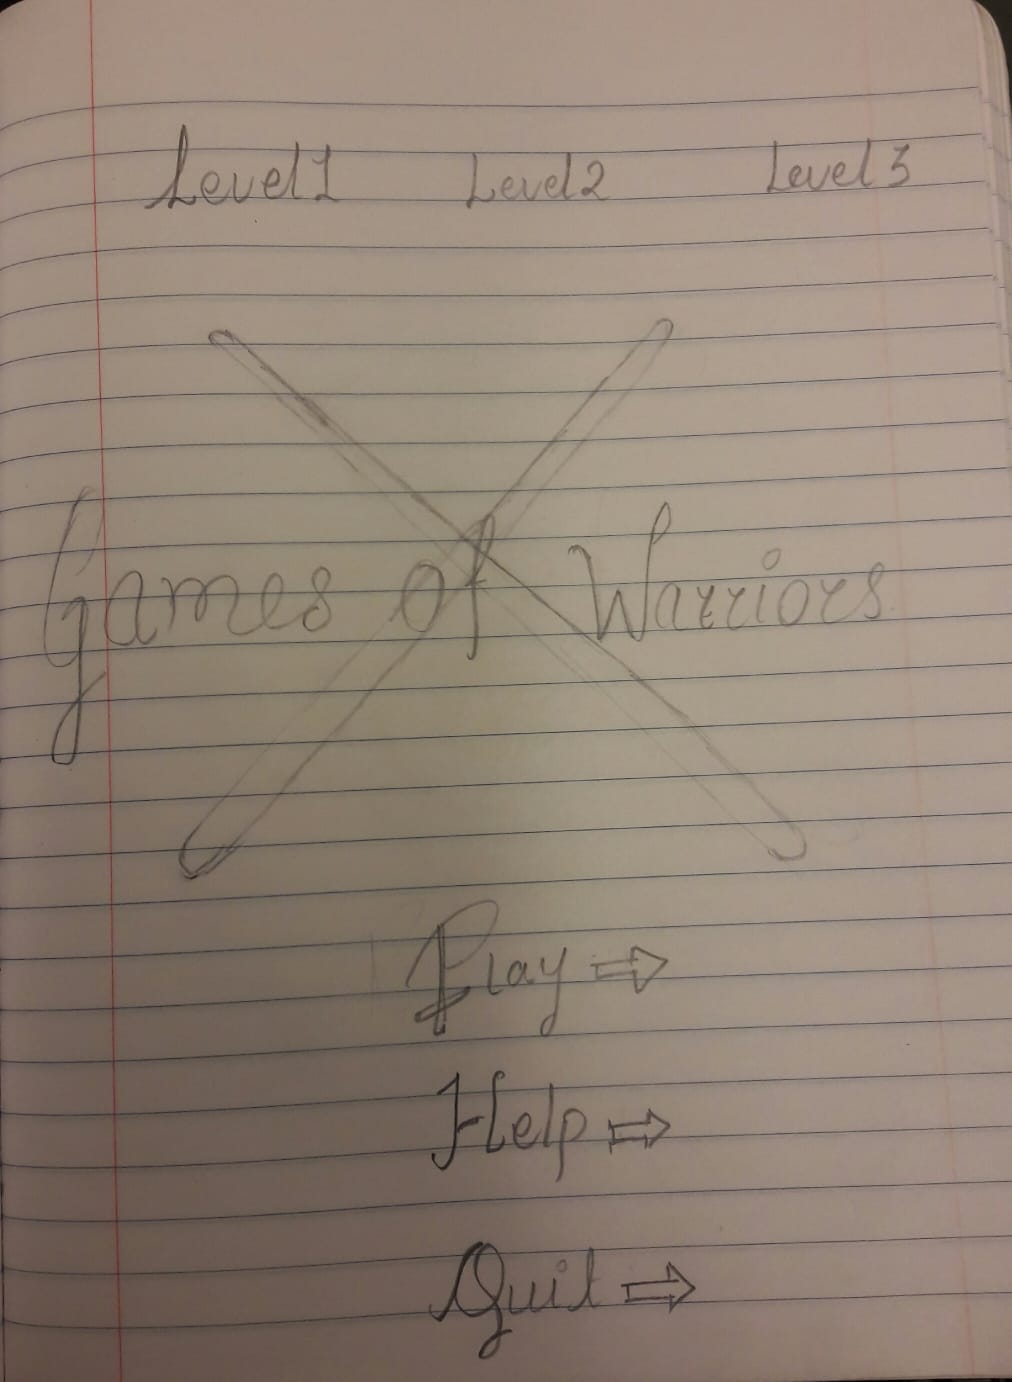 Level 1 Level 2 Level 3
Games of Warriors
Play ⇒
Help ⇒
Quit ⇒